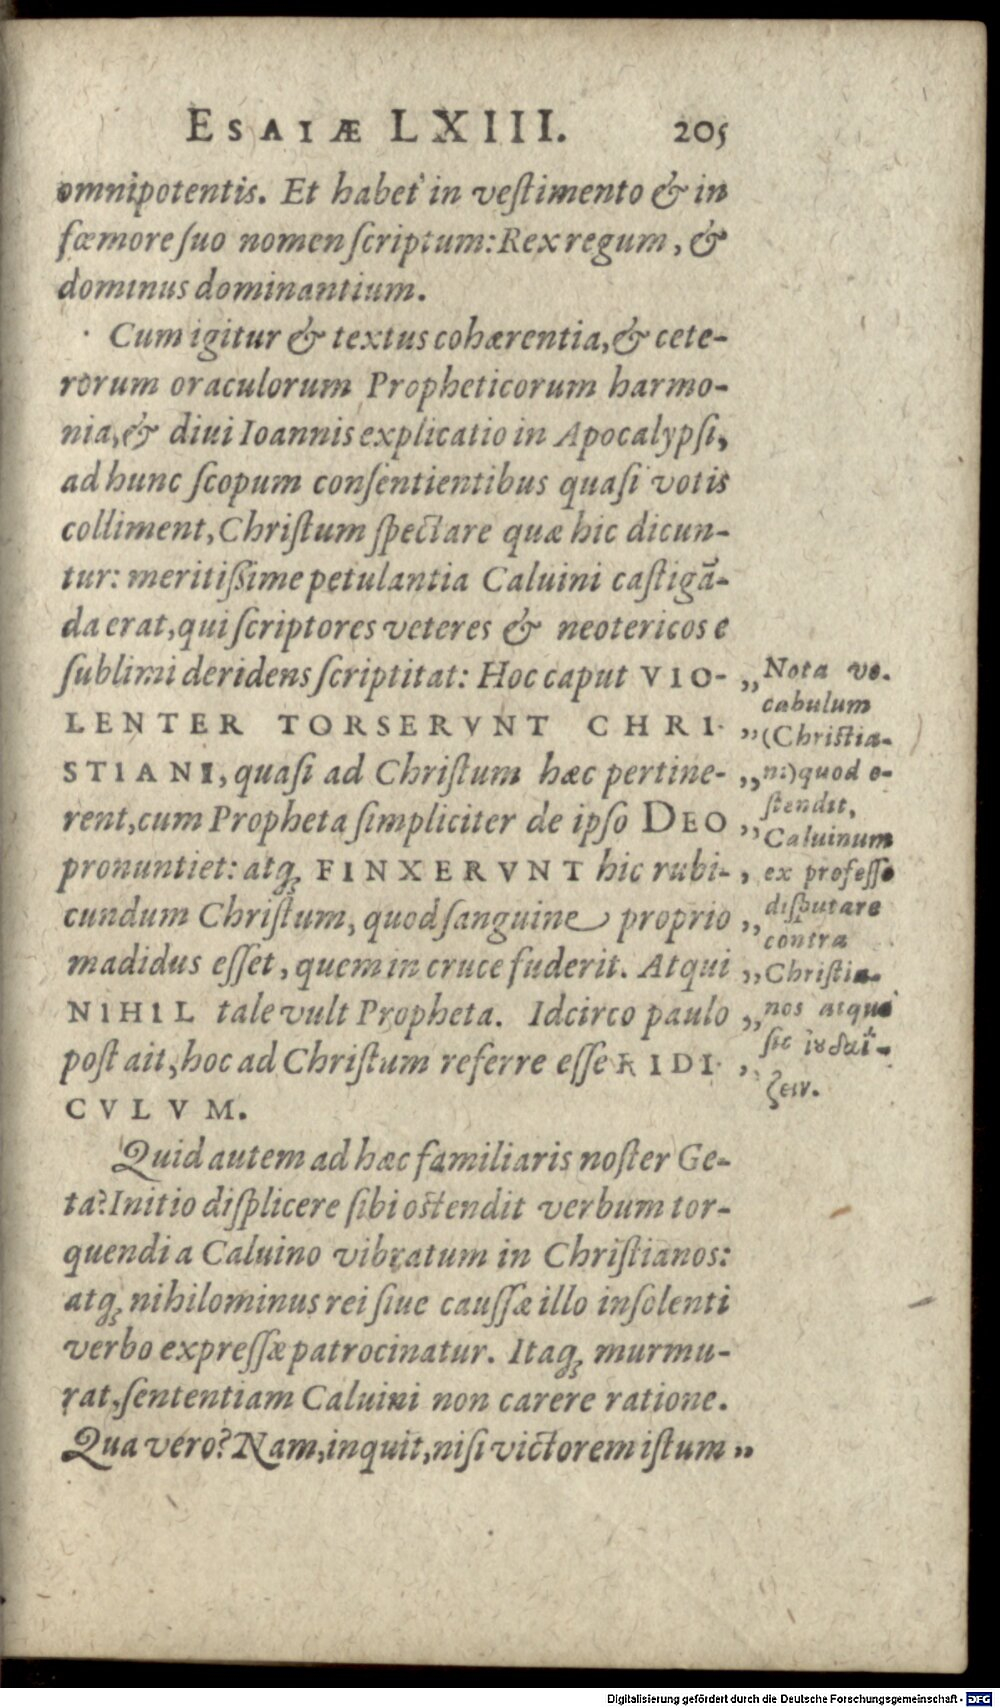 ESAIÆ LXIII. 205
omnipotentis. Et habet in veſtimento & in
fœmore ſuo nomen ſcriptum: Rex regum, &
dominus dominantium.
Cum igitur & textus cohærentia, & cete-
rorum oraculorum Propheticorum harmo-
nia, & diui Ioannis explicatio in Apocalypſi,
ad hunc ſcopum conſentientibus quaſi votis
colliment, Chriſtum ſpectare quæ hic dicun-
tur: meritiſſime petulantia Caluini caſtigā-
da erat, qui ſcriptores veteres & neotericos e
ſublimi deridens ſcriptitat: Hoc caput VIO-
LENTER TORSERVNT CHRI-
STIANI, quaſi ad Chriſtum hæc pertine-
rent, cum Propheta ſimpliciter de ipſo DEO
pronuntiet: atq́; FINXERVNT hic rubi-
cundum Chriſtum, quod ſanguine proprio
madidus eſſet, quem in cruce fuderit. Atqui
NIHIL tale vult Propheta. Idcirco paulo
poſt ait, hoc ad Chriſtum referre eſſe RIDI-
CVLVM.
Quid autem ad hæc familiaris noſter Ge-
ta? Initio diſplicere ſibi oſtendit verbum tor-
quendi a Caluino vibratum in Chriſtianos:
atq; nihilominus rei ſiue cauſſæ illo inſolenti
verbo expreſſæ patrocinatur. Itaq; murmu-
rat, ſententiam Caluini non carere ratione.
Qua vero? Nam, inquit, niſi victorem iſtum „
„ Nota vo-
cabulum
„ (Chriſtia-
„ ni) quod o-
ſtendit,
„ Caluinum
, ex profeſſo
„ diſputare
contra
„ Chriſtia-
„ nos atque
ſic ἰουδαΐ-
ζειν.
Digitalisierung gefördert durch die Deutsche Forschungsgemeinschaft - DFG